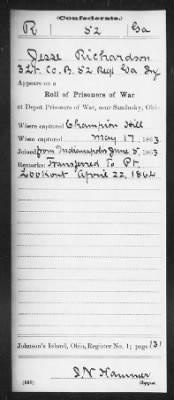 (Confederate.)
R | 52 | Ga
Jesse Richardson
2Lt. Co. B. 52 Regt Ga Inf
Appears on a
Roll of Prisoners of War
at Depot Prisoners of War, near Sandusky, Ohio.
Where captured Champion Hill
When captured May 17, 1863
Joined from Indianapolis June 5, 1863
Remarks: Transferred to Pt.
Lookout April 22, 1864
Johnson's Island, Ohio, Register No. 1; page 131
S. N. Hammer
Copyist.